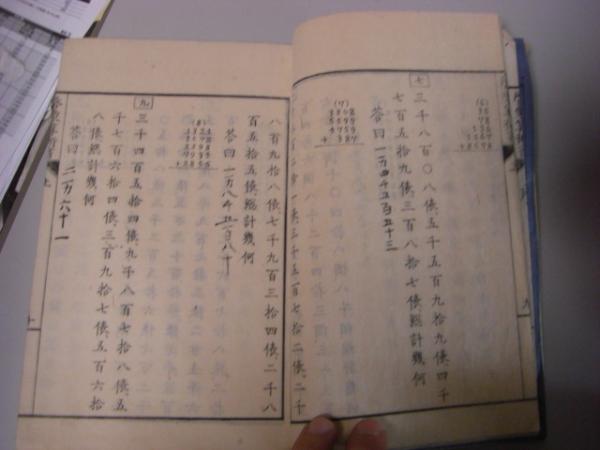 七
三千八百〇八俵、五千五百九拾九俵、四千
七百五拾九俵、三百八拾七俵、總計幾何
答曰 一万四千五百五十三
(7)
3808
5599
4759
+ 387
一俵、三千五百七拾二俵、二千
八百九拾八俵、七千九百三拾四俵、二千八
百五拾五俵、總計幾何
答曰 一万八千五百八十
(8)
九
三千四百五拾四俵、九千八百七拾八俵、五
千七百六拾四俵、三百九拾七俵、五百六拾
八俵、總計幾何
答曰 二万六十一